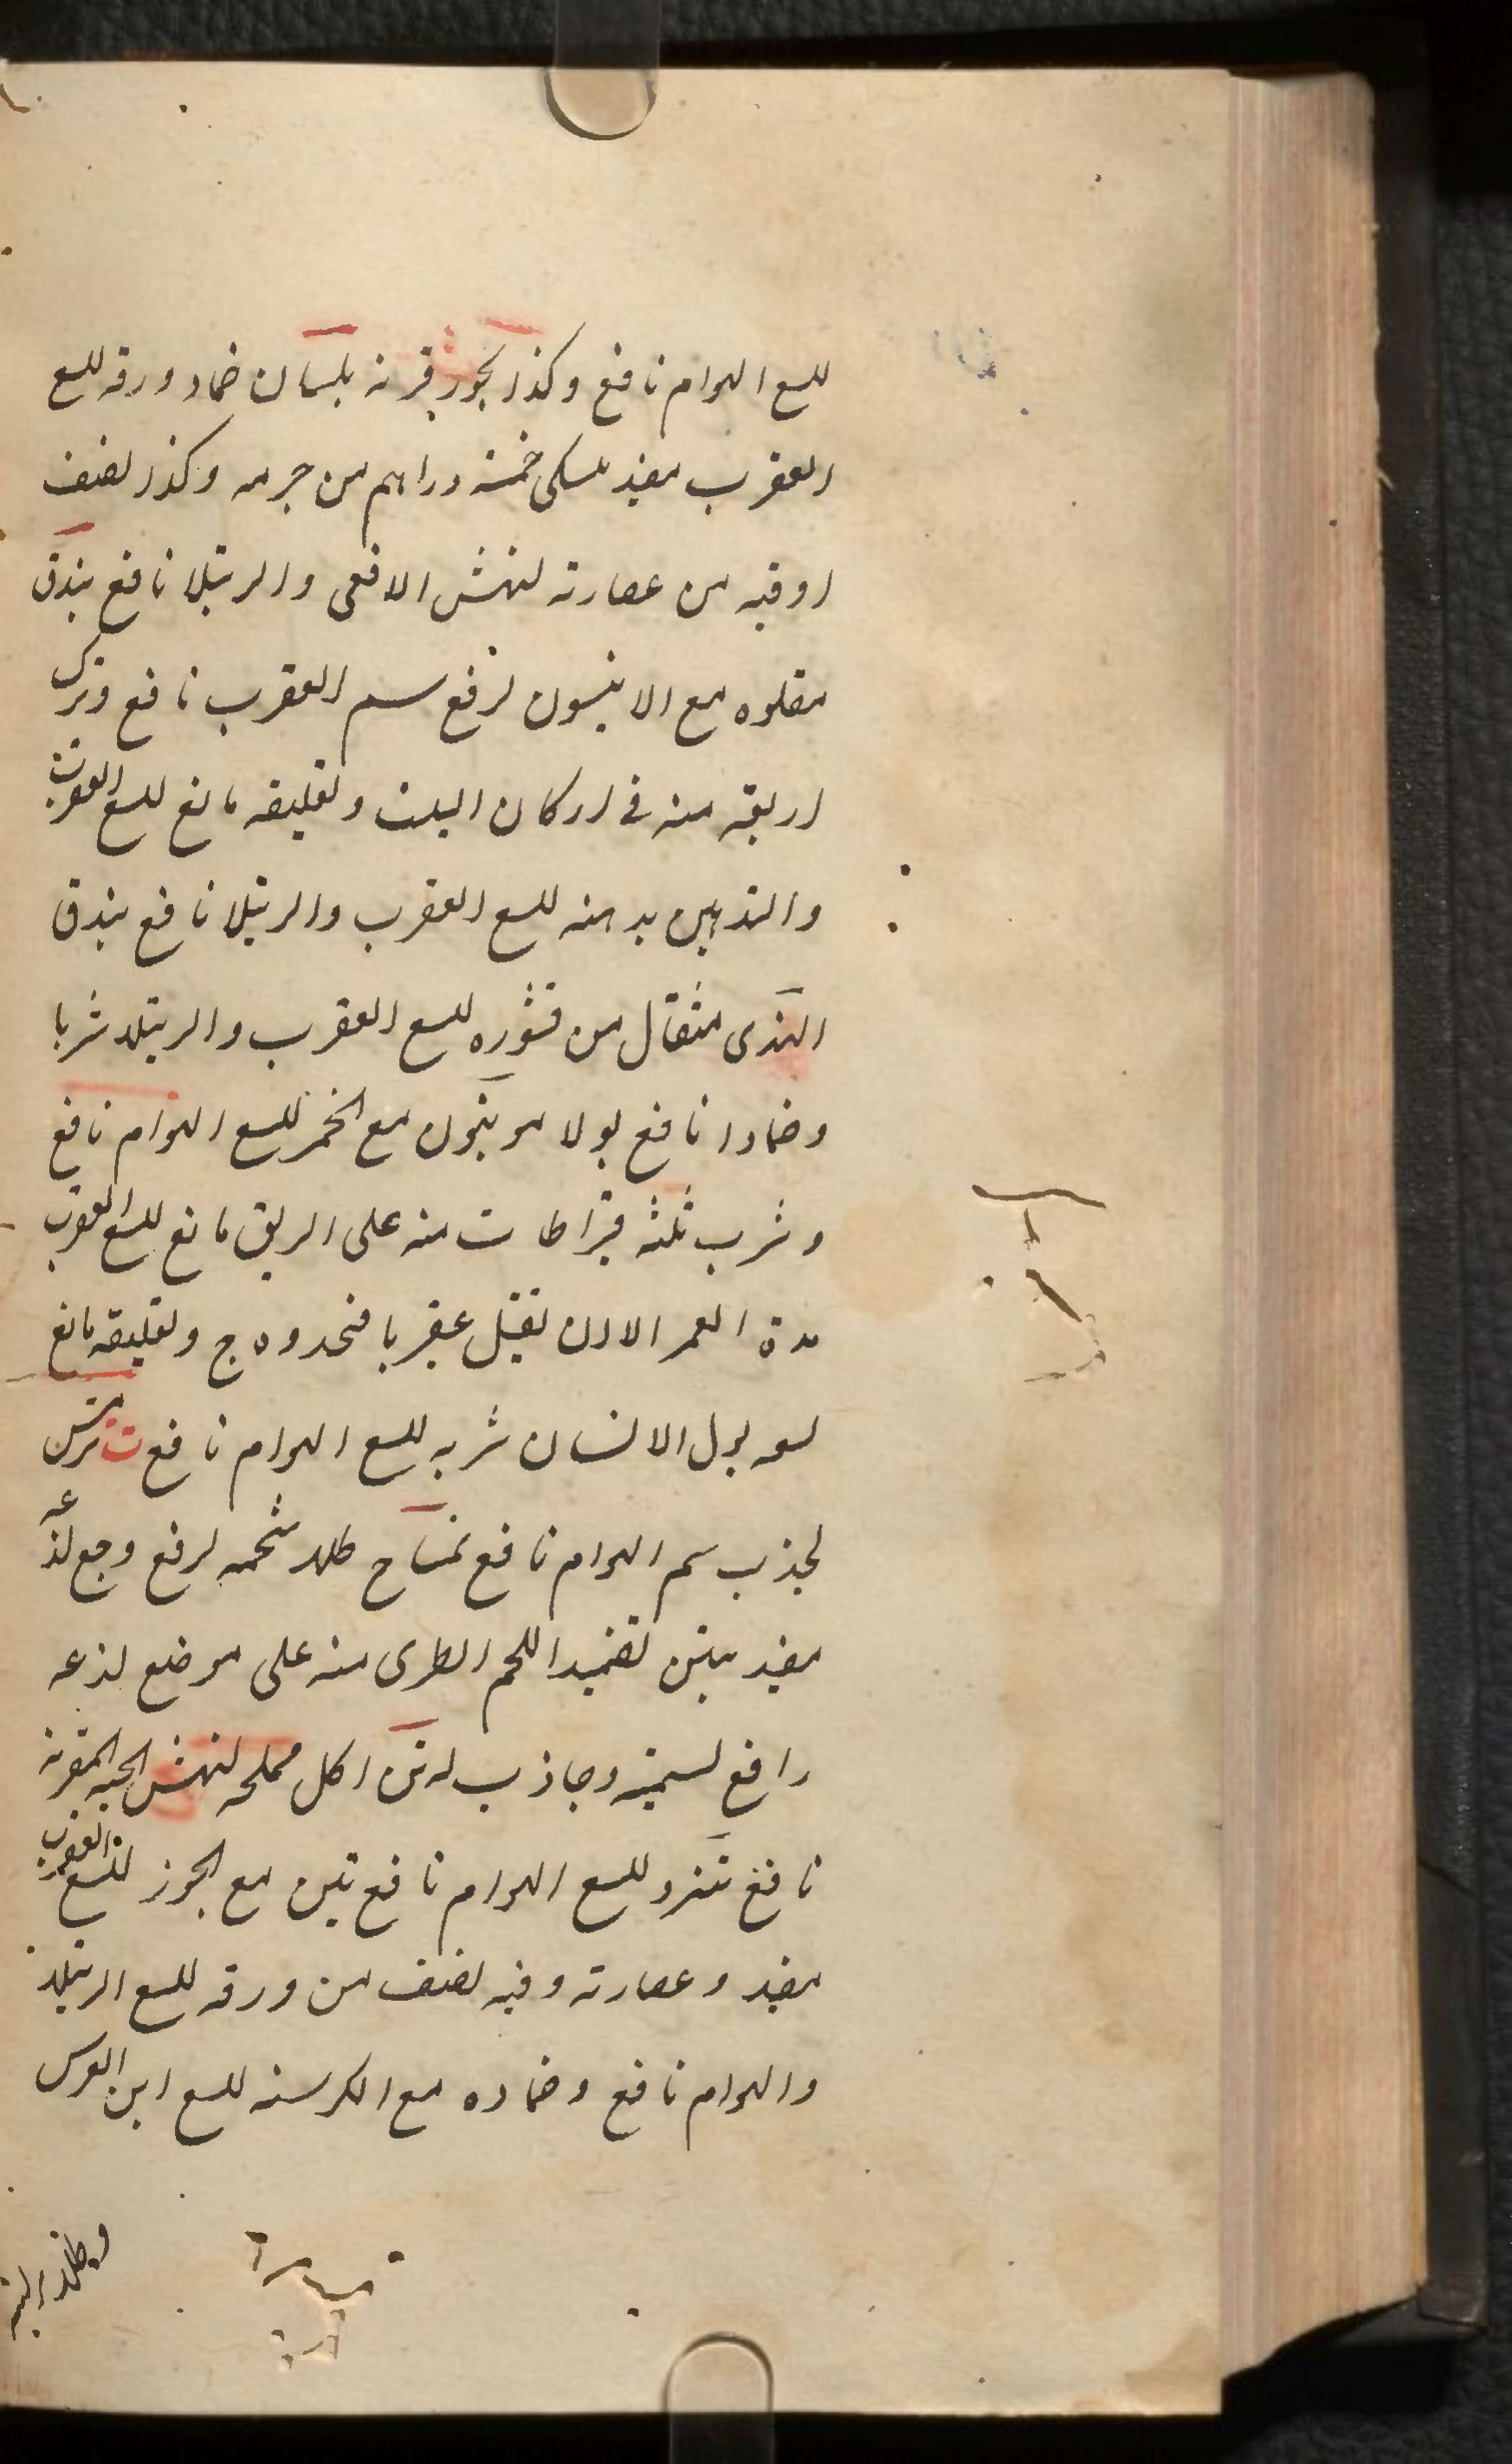 للسع الهوام نافع وكذا بخور قرنه بلسان ضماد ورقه للسع
العقرب مفيد خمسة دراهم من جرمه وكذا نصف
اوقيه من عصارته لنهش الافعى والرتيلا نافع بندق
مقلوه مع الانيسون لرفع سم العقرب نافع وترك
اربعة منه فى اركان البيت وتعليقه مانع للسع العقرب
والتدهين بدهنه للسع العقرب والرتيلا نافع بندق
الهندى مثقال من قشوره للسع العقرب والرتيلا شربا
وضمادا نافع مع الخمر للسع الهوام نافع
وشرب ثلثه قيراطات منه على الريق مانع للسع العقرب
مدة العمر الا ان يقتل عقربا وتعليقه مانع
لسعه بول الانسان شربه للسع الهوام نافع ت
لجذب سم الهوام نافع تمساح طلاء شحمه لرفع وجع لذعه
مفيد تضميد اللحم الطرى منه على موضع لذعه
رافع لسميته وجاذب له اكل مملحه لنهش الحيه المقرنه
نافع للسع الهوام نافع تين مع الجوز للسع العقرب
مفيد وعصارته وفيه نصف من ورقه للسع الرتيلا
والهوام نافع وضماده مع الكرسنه للسع ابن العرس